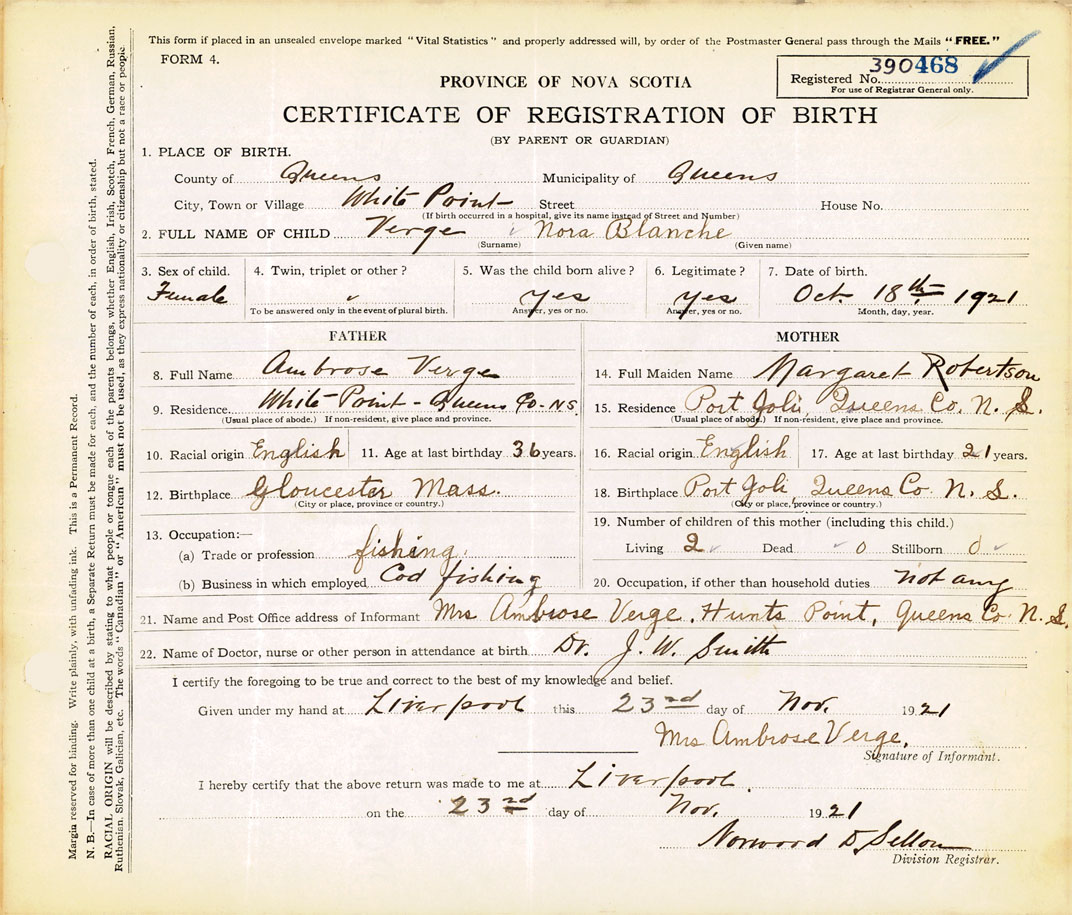 This form if placed in an unsealed envelope marked "Vital Statistics" and properly addressed will, by order of the Postmaster General pass through the Mails "FREE."
FORM 4.
Registered No. 390468
For use of Registrar General only.
PROVINCE OF NOVA SCOTIA
CERTIFICATE OF REGISTRATION OF BIRTH
(BY PARENT OR GUARDIAN)
1. PLACE OF BIRTH.
County of Queens Municipality of Queens
City, Town or Village White Point Street House No.
(If birth occurred in a hospital, give its name instead of Street and Number)
2. FULL NAME OF CHILD Verge Nora Blanche
(Surname) (Given name)
3. Sex of child. 4. Twin, triplet or other? 5. Was the child born alive? 6. Legitimate? 7. Date of birth.
Female yes yes Oct. 18th 1921
To be answered only in the event of plural birth. Answer, yes or no. Answer, yes or no. Month, day, year.
FATHER
8. Full Name Ambrose Verge
9. Residence White Point - Queens Co - N.S.
(Usual place of abode.) If non-resident, give place and province.
10. Racial origin English 11. Age at last birthday 36 years.
12. Birthplace Gloucester Mass.
(City or place, province or country.)
13. Occupation:—
(a) Trade or profession fishing.
(b) Business in which employed Cod fishing
MOTHER
14. Full Maiden Name Margaret Robertson
15. Residence Port Joli, Queens Co. N. S.
(Usual place of abode.) If non-resident, give place and province.
16. Racial origin English 17. Age at last birthday 21 years.
18. Birthplace Port Joli, Queens Co. N. S.
(City or place, province or country.)
19. Number of children of this mother (including this child.)
Living 2 Dead 0 Stillborn 0
20. Occupation, if other than household duties not any
21. Name and Post Office address of Informant Mrs Ambrose Verge. Hunts Point, Queens Co. N. S.
22. Name of Doctor, nurse or other person in attendance at birth Dr. J. W. Smith
I certify the foregoing to be true and correct to the best of my knowledge and belief.
Given under my hand at Liverpool this 23rd day of Nov. 1921
Mrs Ambrose Verge.
Signature of Informant.
I hereby certify that the above return was made to me at Liverpool.
on the 23rd day of Nov. 1921
Norwood D. Sellon
Division Registrar.
Margin reserved for binding. Write plainly, with unfading ink. This is a Permanent Record.
N. B.—In case of more than one child at a birth, a Separate Return must be made for each, and the number of each, in order of birth, stated.
RACIAL ORIGIN will be described by stating to what people or tongue each of the parents belongs, whether English, Irish, Scotch, French, German, Russian,
Ruthenian. Slovak, Galician, etc. The words "Canadian" or "American" must not be used, as they express nationality or citizenship but not a race or people.